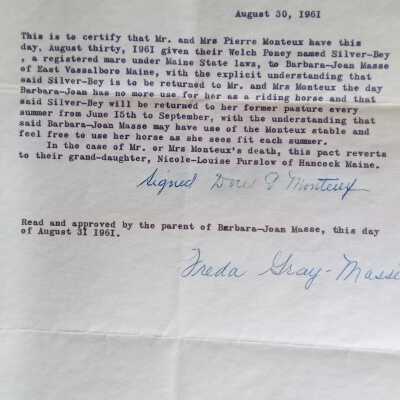 August 30, 1961
This is to certify that Mr. and Mrs Pierre Monteux have this
day, August thirty, 1961 given their Welch Poney named Silver-Bey
, a registered mare under Maine State laws, to Barbara-Joan Masse
of East Vassalboro Maine, with the explicit understanding that
said Silver-Bey is to be returned to Mr. and Mrs Monteux the day
Barbara-Joan has no more use for her as a riding horse and that
said Silver-Bey will be returned to her former pasture every
summer from June 15th to September, with the understanding that
said Barbara-Joan Masse may have use of the Monteux stable and
feel free to use her horse as she sees fit each summer.
In the case of Mr. or Mrs Monteux's death, this pact reverts
to their grand-daughter, Nicole-Louise Purslow of Hancock Maine.
Signed Doris G Monteux
Read and approved by the parent of Barbara-Joan Masse, this day
of August 31 1961.
Freda Gray-Masse